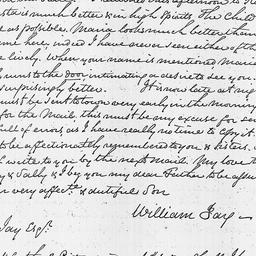 is much better & in high Spirits. The Child
as possible. Maria looks much better than
me here, indeed I have never seen either of th
lively. When your name is mentioned Maria
runs to the door intimating a desire to see you
surprisingly better. It is now late at nigh
must be sent to town very early in the morning
for the Mail. this must be any excuse for sen
full of errors, as I have really no time to copy it.
to be affectionately remembered to you & sisters.
write to you by the next Mail. My love t
& Sally & I beg you my dear Father to be assu
very affecte. & dutiful Son
William Jay
Jay Esqr.